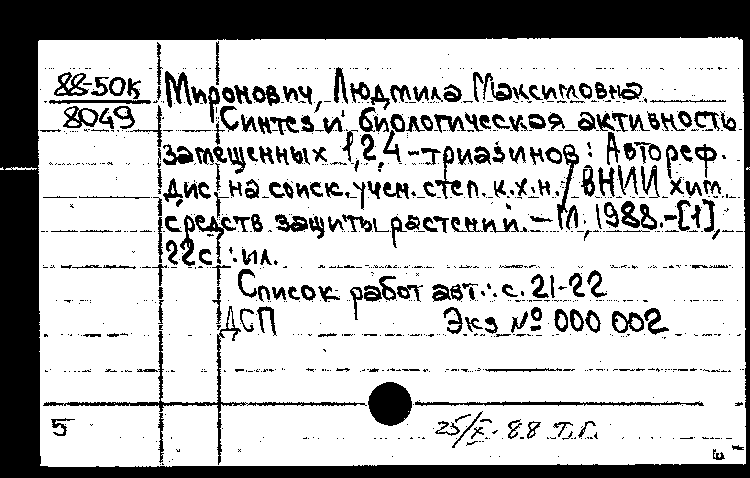 88-50к
8049
Миронович, Людмила Максимовна.
Синтез и биологическая активность
замещенных 1,2,4-триазинов: Автореф.
дис. на соиск. учен. степ. к.х.н. / ВНИИ хим.
средств защиты растений. – М., 1988. – [1],
22с.: ил.
Список работ авт.: с. 21-22
ДСП Экз № 000 002
5
25/X-88 Т.Г.